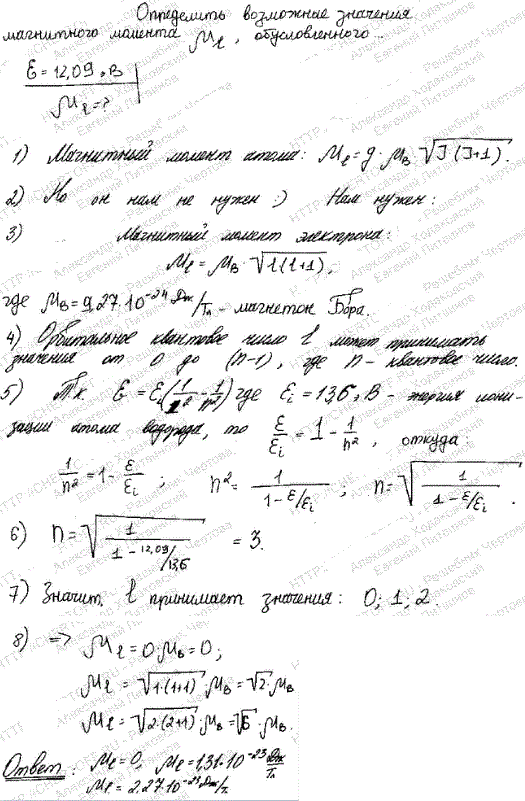 Определить возможные значения
магнитного момента μℓ, обусловленного ..
ε = 12,09 эВ
μℓ = ?
1) Магнитный момент атома: μℓ = g · μВ √J(J+1).
2) Но он нам не нужен :) Нам нужен:
3) Магнитный момент электрона:
μℓ = μВ · √l(l+1),
где μВ = 9,27·10⁻²⁴ Дж/Тл – магнетон Бора.
4) Орбитальное квантовое число l может принимать
значения от 0 до (n-1), где n – квантовое число.
5) Т.к. ε = εi(1/1² - 1/n²) где εi = 13,6 эВ – энергия иони-
зации атома водорода, то ε/εi = 1 - 1/n², откуда:
1/n² = 1 - ε/εi ; n² = 1/(1 - ε/εi) ; n = √(1/(1 - ε/εi)).
6) n = √(1/(1 - 12,09/13,6)) = 3.
7) Значит, l принимает значения: 0; 1; 2.
8) => μℓ = 0·μВ = 0;
μℓ = √1·(1+1)·μВ = √2·μВ
μℓ = √2·(2+1)·μВ = √6·μВ.
Ответ: μℓ = 0, μℓ = 1,31·10⁻²³ Дж/Тл
μℓ = 2,27·10⁻²³ Дж/Тл